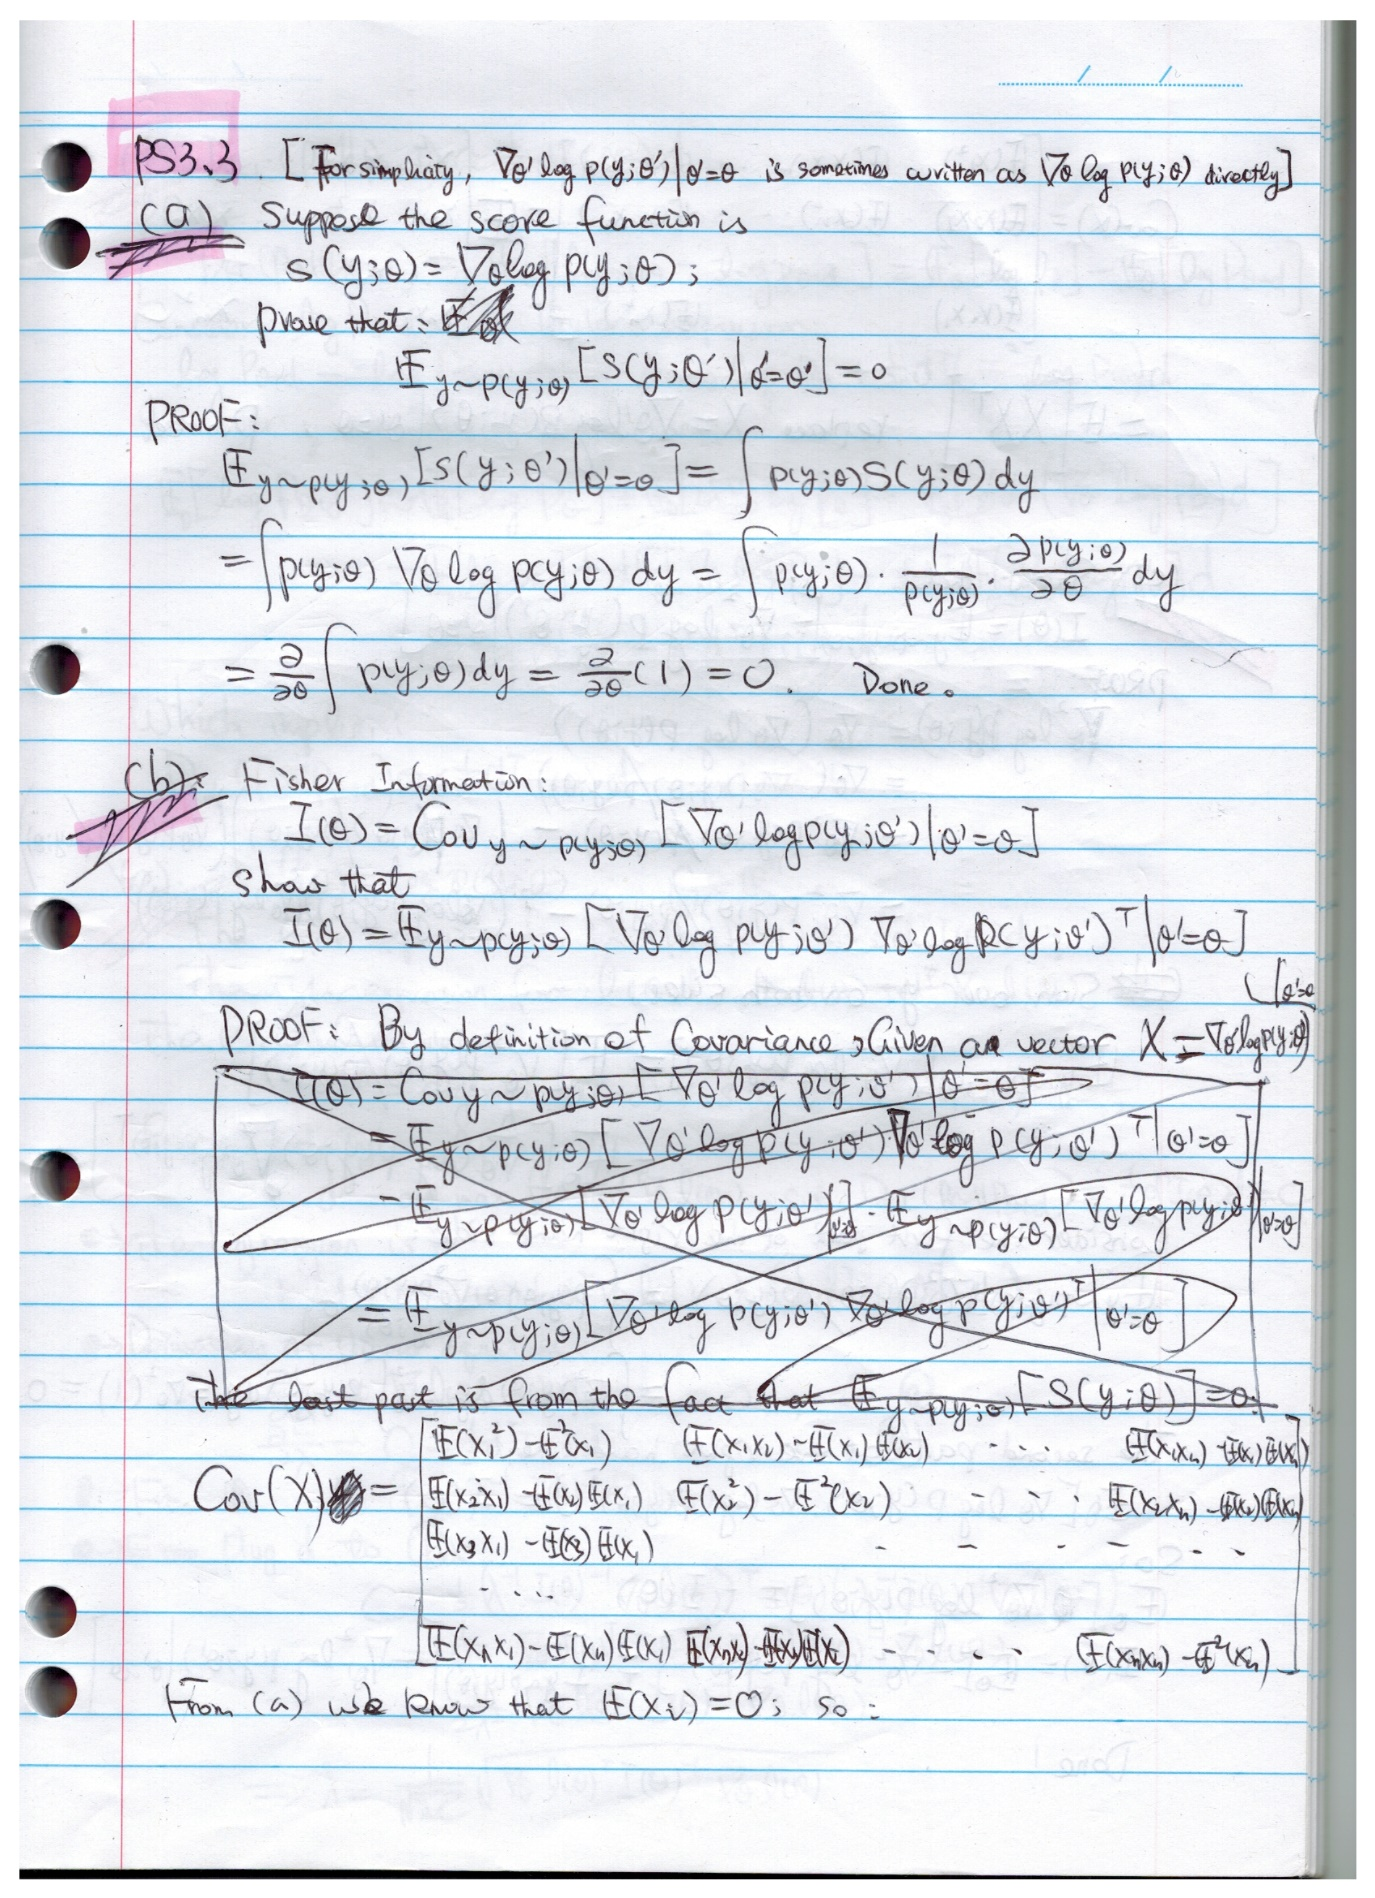 PS3.3 [For simplicity, ∇θ' log p(y;θ')|θ'=θ is sometimes written as ∇θ log p(y;θ) directly]
(a) Suppose the score function is
s(y;θ) = ∇θ log p(y;θ);
prove that:
𝔼y~p(y;θ) [s(y;θ')|θ'=θ'] = 0
PROOF:
𝔼y~p(y;θ) [s(y;θ')|θ'=θ] = ∫ p(y;θ) s(y;θ) dy
= ∫ p(y;θ) ∇θ log p(y;θ) dy = ∫ p(y;θ) · 1/p(y;θ) · ∂p(y;θ)/∂θ dy
= ∂/∂θ ∫ p(y;θ) dy = ∂/∂θ (1) = 0. Done.
(b): Fisher Information:
I(θ) = Cov y~p(y;θ) [∇θ' log p(y;θ')|θ'=θ]
show that
I(θ) = 𝔼y~p(y;θ) [∇θ' log p(y;θ') ∇θ' log p(y;θ')ᵀ|θ'=θ]
|θ'=θ
PROOF: By definition of Covariance, Given a vector X = ∇θ' log p(y;θ')
I(θ) = Cov y~p(y;θ) [∇θ' log p(y;θ')|θ'=θ]
= 𝔼y~p(y;θ) [∇θ' log p(y;θ') ∇θ' log p(y;θ')ᵀ|θ'=θ]
- 𝔼y~p(y;θ) [∇θ' log p(y;θ')|θ'=θ] · 𝔼y~p(y;θ) [∇θ' log p(y;θ')|θ'=θ]
= 𝔼y~p(y;θ) [∇θ' log p(y;θ') ∇θ' log p(y;θ')ᵀ|θ'=θ]
The last part is from the fact that 𝔼y~p(y;θ) [s(y;θ)] = 0.
𝔼(x₁²) - 𝔼²(x₁) 𝔼(x₁x₂) - 𝔼(x₁)𝔼(x₂) ..... 𝔼(x₁xₙ) - 𝔼(x₁)𝔼(xₙ)
Cov(X) = 𝔼(x₂x₁) - 𝔼(x₂)𝔼(x₁) 𝔼(x₂²) - 𝔼²(x₂) - - · · 𝔼(x₂xₙ) - 𝔼(x₂)𝔼(xₙ)
𝔼(x₃x₁) - 𝔼(x₃)𝔼(x₁) - - - - - · ·
· - · · ·
𝔼(xₙx₁) - 𝔼(xₙ)𝔼(x₁) 𝔼(xₙx₂) - 𝔼(xₙ)𝔼(x₂) - - · · · 𝔼(xₙxₙ) - 𝔼²(xₙ)
From (a) we know that 𝔼(xᵢ) = 0; so: